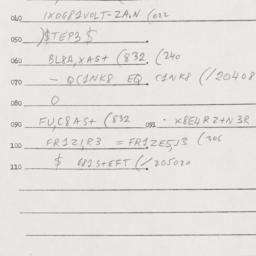 040 IX0G81VOLT-ZA.N (022
050 )$TEP3 $
060 BL8A,XAS+ (832. (240
070 - QC1NK8 EQ C1NK8 (/20408
080 0
090 FU,C8AS+ (832 091 . X8E4RZ+N3R
100 FR1Z1,R3 =FR1ZE5,13 (306
110 $ 681S+EFT (/205020